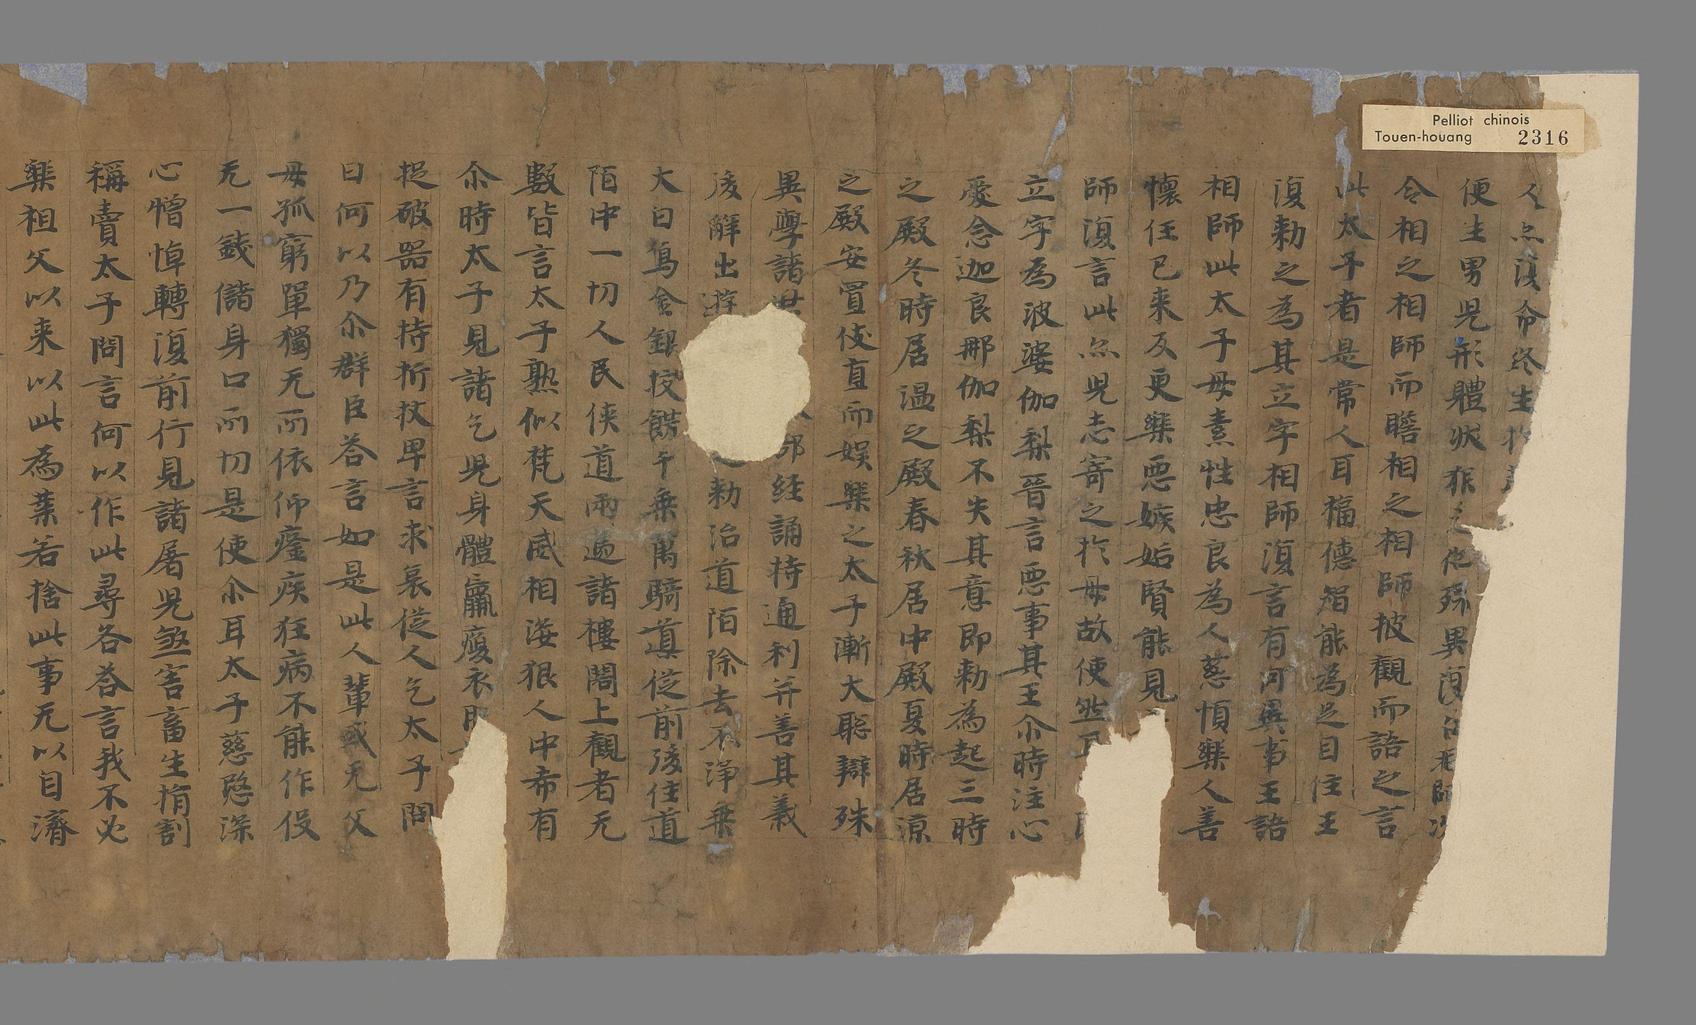 Pelliot chinois
Touen-houang 2316
人亦復命終生於
便生男兒形體狀貌 殊異復召相師
令相之相師而瞻相之相師披觀而語之言
此太子者是常人耳福德智能為足自住王
復勅之為其立字相師復言有何異事王語
相師此太子母素性忠良為人慈慎樂人善
懷任已來反更樂惡嫉妬賢能見
師復言此亦兒志寄之於母故使然耳
立字為波婆伽梨晉言惡事其王尒時注心
愛念迦良那伽梨不失其意即勅為起三時
之殿冬時居溫之殿春秋居中殿夏時居涼
之殿安置伎直而娛樂之太子漸大聡辯殊
異學諸世 部經誦持通利并善其義
後辭出遊 勅治道陌除去不淨乗
大白鳥金銀挍餝千乗萬騎導從前後住道
陌中一切人民俠道兩邊諸樓閣上觀者无
數皆言太子熟似梵天威相海狠人中希有
尒時太子見諸乞兒身體羸瘦衣
捉破器有持折杖卑言求哀從人乞太子問
曰何以乃尒群臣答言如是此人輩或无父
母孤窮單獨无所依仰癃疾狂病不能作役
无一錢儲身口所切是使尒耳太子慈愍深
心憎悼轉復前行見諸屠兒煞害畜生揃割
稱賣太子問言何以作此尋各答言我不必
樂祖父以来以此為業若捨此事无以自濟